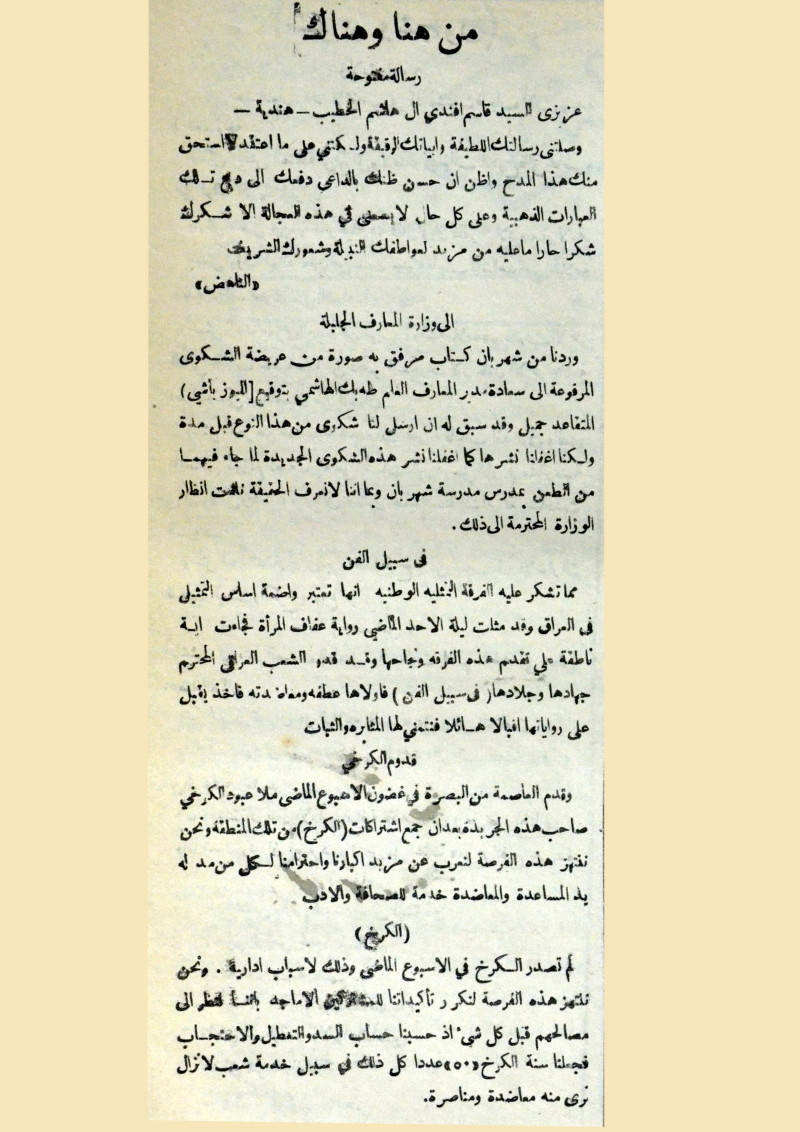 من هنا وهناك
رسالة مفتوحة
عزيزى السيد قاسم افندي ال هاشم الخطيب ـ هندية ـ
وصلتنى رسالتك اللطيفة وابياتك الرقيقة ولـكنني على ما اعتقد لا استحق
منك هذا المدح واظن ان حسن ظنك بالداعي دفعك الى دبج تـلك
العبارات الذهبية وعلى كل حال لا يسعنى في هذه العجالة الا شـكرك
شكرا حارا ماعليه من مزيد لعواطفك النبيلة وشعورك الشريف
«الناهض»
الى وزارة المعارف الجليلة
وردنا من شهربان كـتاب مرفق به صورة من عريضة الشـكوى
المرفوعة الى سعادة مدير المعارف العام طه بك الهاشمي بتوقيع [اليوز باشي)
المتقاعد جميل وقد سبق له ان ارسل لنا شكوى من هذا النوع قبل مدة
ولـكنا اغفلنا نشرها كما اغفلنا نشر هذه الشكوى الجديدة لما جاء فيهمـا
من الطعن بمدرس مدرسة شهربان وبما اننا لانعرف الحقيقة نلفت انظار
الوزارة المحترمة الى ذلك .
فى سبيل الفن
مما تشكر عليه الفرقة التمثليه الوطنيه انها تعتبر واضعة اساس التمثيلى
فى العراق وقد مثلت ليلة الاحد الماضي رواية عفاف المرأة فجاءت ايـة
ناطقة على تقدم هذه الفرقه ونجاحها وقـد قدر الشعب العراقى المحترم
جهادها وجلادها ( فى سبيل الفن ) فاولاها عطفه ومعاضدته فاخذ يقبل
على رواياتها اقبالا هـائلا فنتمني لها المثابره والثبات
قدوم الكرخي
وقدم العاصمة من البصرة في غضون الاسبوع الماضى ملا عبود الكرخي
صاحب هذه الجريدة بعد ان جمع اشتراكات (الكرخ) من تلك المنطقه ونحن
ننتهز هذه الفرصة لنعرب عن مزيد اكبارنا واحترامنا لـكل من مد له
يد المساعدة والمعاضدة خدمة للصحافة والادب
(الكرخ)
لم تصدر الـكرخ في الاسبوع الماضى وذلك لاسباب ادارية . ونحن
ننتهز هذه الفرصة لنكرر تأكيداتنا للمشتركين الاماجد باننـا ننظر الى
مصالحهم قبل كل شىء اذ حسبنا حساب السد والتعطيل والاحتجـاب
فجعلنا سنة الكرخ «٥٠» عددا كل ذلك في سبيل خدمة شعب لا نزال
نرى منه معاضدة ومناصرة.